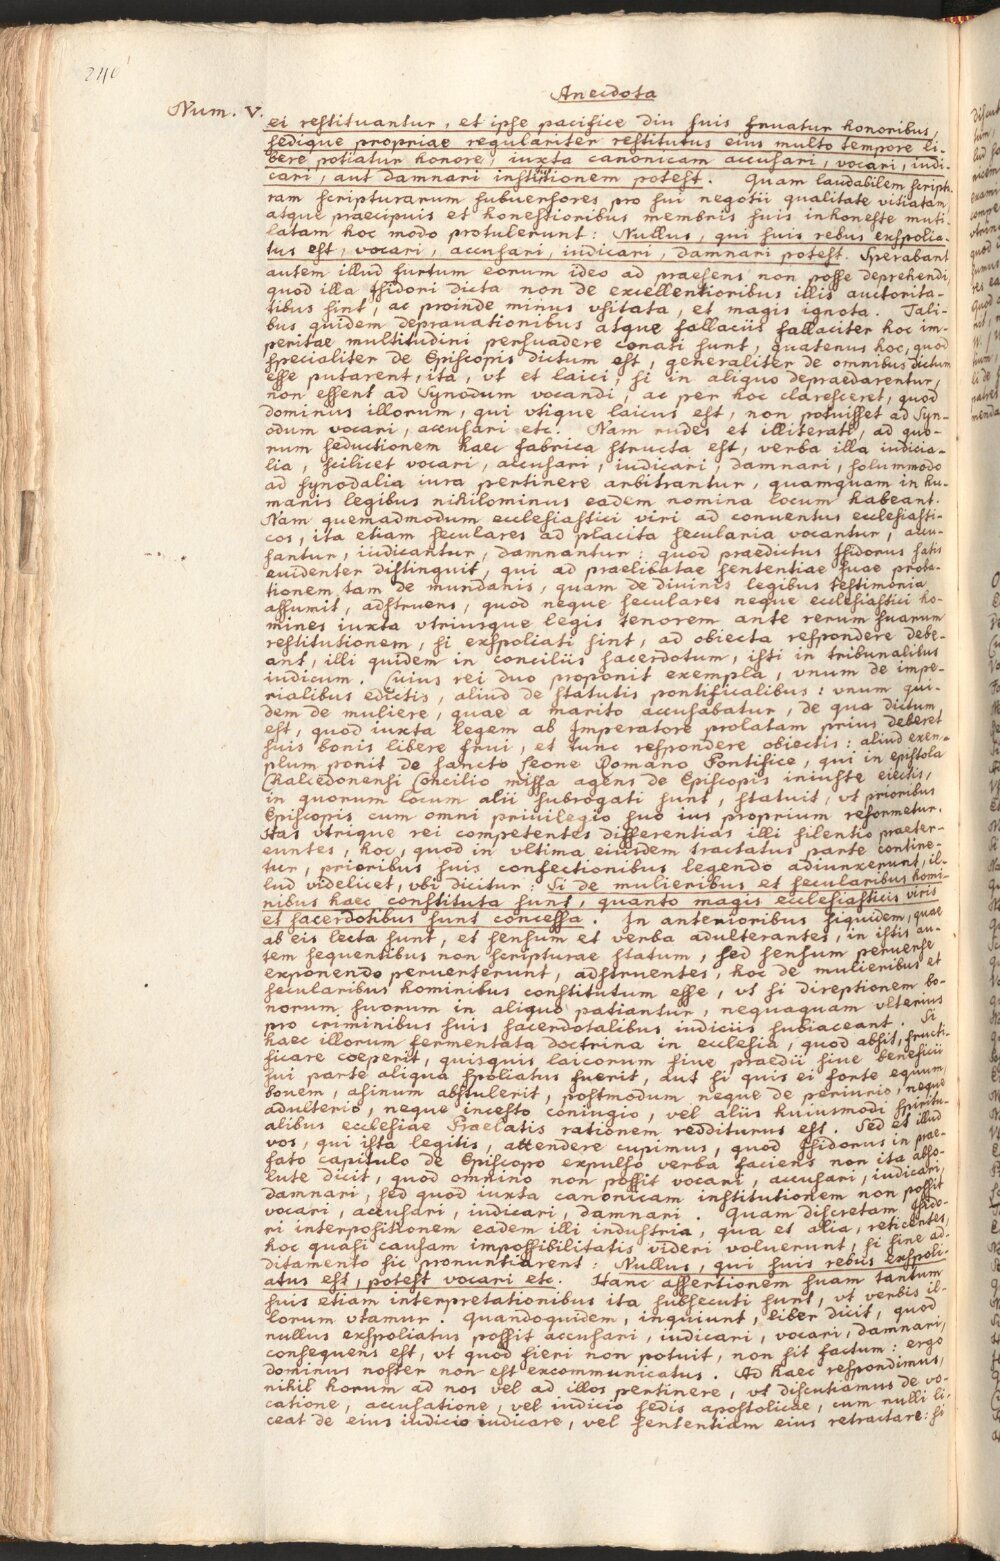 240
Anecdota
Num. V.
ei restituantur, et ipse pacifice diu suis fruatur honoribus,
sedique propriae regulariter restitutus eius multo tempore li-
bere potiatur honore, iuxta canonicam accusari, vocari, iudi-
cari, aut damnari institutionem potest. Quam laudabilem scriptu-
ram scripturarum subuersores pro sui negotii qualitate vitiatam
atque praecipuis et honestioribus membris suis inhoneste muti-
latam hoc modo protulerunt: Nullus, qui suis rebus exspolia-
tus est, vocari, accusari, iudicari, damnari potest. Sperabant
autem illud furtum eorum ideo ad praesens non posse deprehendi,
quod illa Isidori dicta non de excellentioribus illis auctorita-
tibus sint, ac proinde minus vsitata, et magis ignota. Tali-
bus quidem deprauationibus atque fallaciis fallaciter hoc im-
peritae multitudini persuadere conati sunt, quatenus hoc, quod
specialiter de Episcopis dictum est, generaliter de omnibus dictum
esse putarent, ita, vt et laici, si in aliquo depraedarentur,
non essent ad Synodum vocandi, ac per hoc claresceret, quod
dominus illorum, qui vtique laicus est, non potuisset ad Syn-
odum vocari, accusari etc. Nam rudes et illiterati, ad quo-
rum seductionem haec fabrica structa est, verba illa iudicia-
lia, scilicet vocari, accusari, iudicari, damnari, solummodo
ad synodalia iura pertinere arbitrantur, quamquam in hu-
manis legibus nihilominus eadem nomina locum habeant.
Nam quemadmodum ecclesiastici viri ad conuentus ecclesiasti-
cos, ita etiam seculares ad placita secularia vocantur, accu-
santur, iudicantur, damnantur: quod praedictus Isidorus satis
euidenter distinguit, qui ad praelibatae sententiae suae proba-
tionem tam de mundanis, quam de diuinis legibus testimonia
assumit, adstruens, quod neque seculares neque ecclesiastici ho-
mines iuxta vtriusque legis tenorem ante rerum suarum
restitutionem, si exspoliati sint, ad obiecta respondere debe-
ant, illi quidem in conciliis sacerdotum, isti in tribunalibus
iudicum. Cuius rei duo proponit exempla, vnum de impe-
rialibus edictis, aliud de statutis pontificalibus: vnum qui-
dem de muliere, quae a marito accusabatur, de qua dictum
est, quod iuxta legem ab Imperatore prolatam prius deberet
suis bonis libere frui, et tunc respondere obiectis: aliud exem-
plum ponit de sancto Leone Romano Pontifice, qui in epistola
Chalcedonensi Concilio missa agens de Episcopis iniuste eiectis,
in quorum locum alii subrogati sunt, statuit, vt prioribus
Episcopis cum omni priuilegio suo ius proprium reformetur.
Has vtrique rei competentes differentias illi silentio praeter-
euntes, hoc, quod in vltima eiusdem tractatus parte contine-
tur, prioribus suis confectionibus legendo adiunxerunt, il-
lud videlicet, vbi dicitur: Si de mulieribus et secularibus homi-
nibus haec constituta sunt, quanto magis ecclesiasticis viris
et sacerdotibus sunt concessa. In anterioribus siquidem, quae
ab eis lecta sunt, et sensum et verba adulterantes, in istis au-
tem sequentibus non scripturae statum, sed sensum peruerse
exponendo peruerterunt, adstruentes, hoc de mulieribus et
secularibus hominibus constitutum esse, vt si direptionem bo-
norum suorum in aliquo patiantur, nequaquam vlterius
pro criminibus suis sacerdotalibus iudiciis subiaceant. Si
haec illorum fermentata doctrina in ecclesia, quod absit, fructi-
ficare coeperit, quisquis laicorum siue praedii siue beneficii
sui parte aliqua spoliatus fuerit, aut si quis ei forte equum,
bouem, asinum abstulerit, postmodum neque de periurio, neque
adulterio, neque incesto coniugio, vel aliis huiusmodi spiritu-
alibus ecclesiae Praelatis rationem redditurus est. Sed et illud
vos, qui ista legitis, attendere cupimus, quod Isidorus in prae-
fato capitulo de Episcopo expulso verba faciens non ita abso-
lute dicit, quod omnino non possit vocari, accusari, iudicari,
damnari, sed quod iuxta canonicam institutionem non possit
vocari, accusari, iudicari, damnari. Quam discretam Isido-
ri interpositionem eadem illi industria, qua et alia, reticentes,
hoc quasi causam impossibilitatis videri voluerunt, si sine ad-
ditamento sic pronuntiarent: Nullus, qui suis rebus exspoli-
atus est, potest vocari etc. Hanc assertionem suam tantum
suis etiam interpretationibus ita subsecuti sunt, vt verbis il-
lorum vtamur. Quandoquidem, inquiunt, liber dicit, quod
nullus exspoliatus possit accusari, iudicari, vocari, damnari,
consequens est, vt quod fieri non potuit, non sit factum: ergo
dominus noster non est excommunicatus. Ad haec respondimus,
nihil horum ad nos vel ad illos pertinere, vt discutiamus de vo-
catione, accusatione, vel iudicio sedis apostolicae, cum nulli li-
ceat de eius iudicio iudicare, vel sententiam eius retractare: si